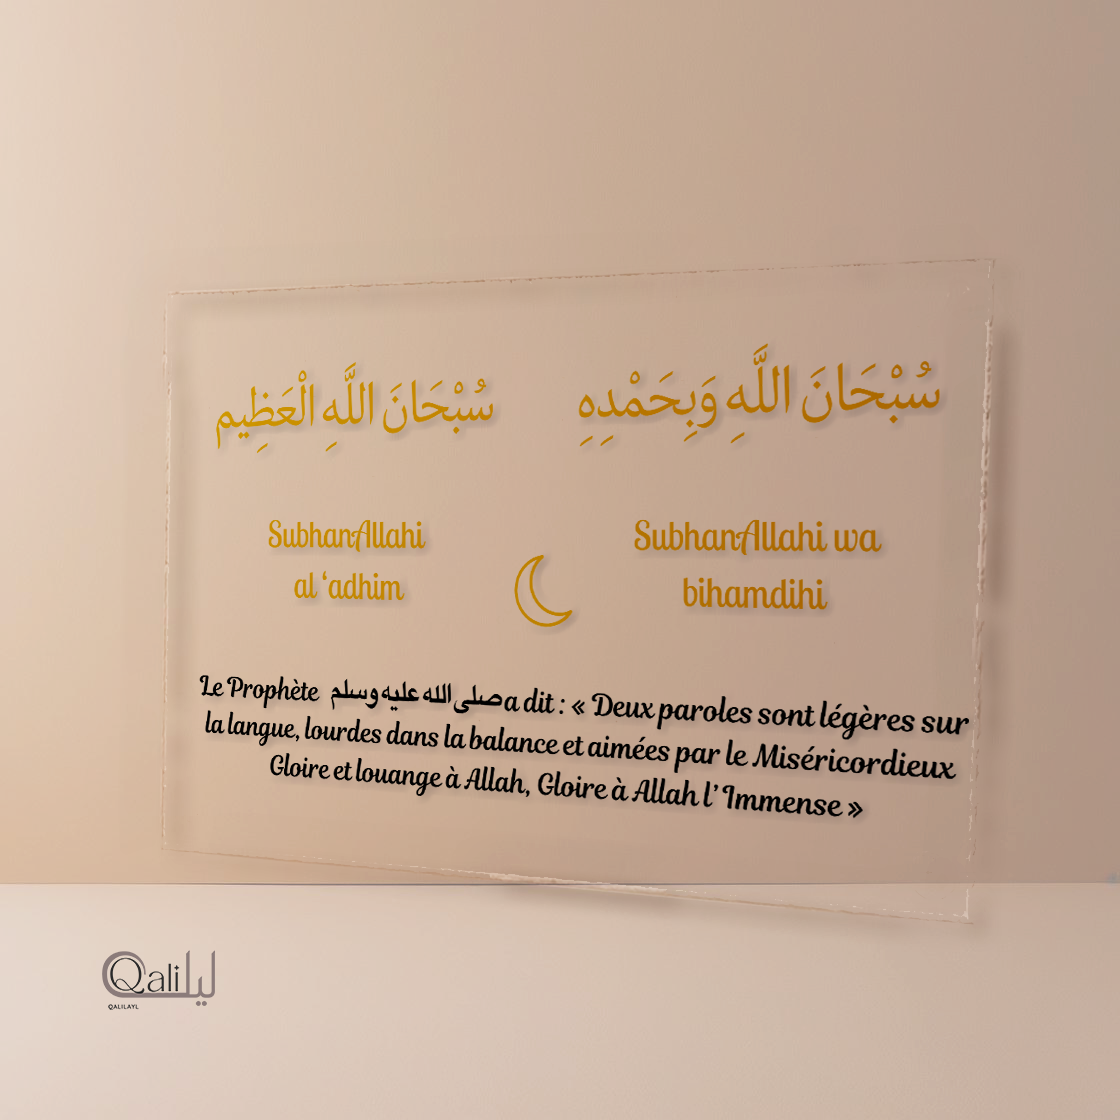 سُبْحَانَ اللَّهِ وَبِحَمْدِهِ
سُبْحَانَ اللَّهِ الْعَظِيم
SubhanAllahi
al ‘adhim
SubhanAllahi wa
bihamdihi
Le Prophète صلى الله عليه وسلم a dit : « Deux paroles sont légères sur
la langue, lourdes dans la balance et aimées par le Miséricordieux
Gloire et louange à Allah, Gloire à Allah l’ Immense »
Qali ليل
QALILAYL